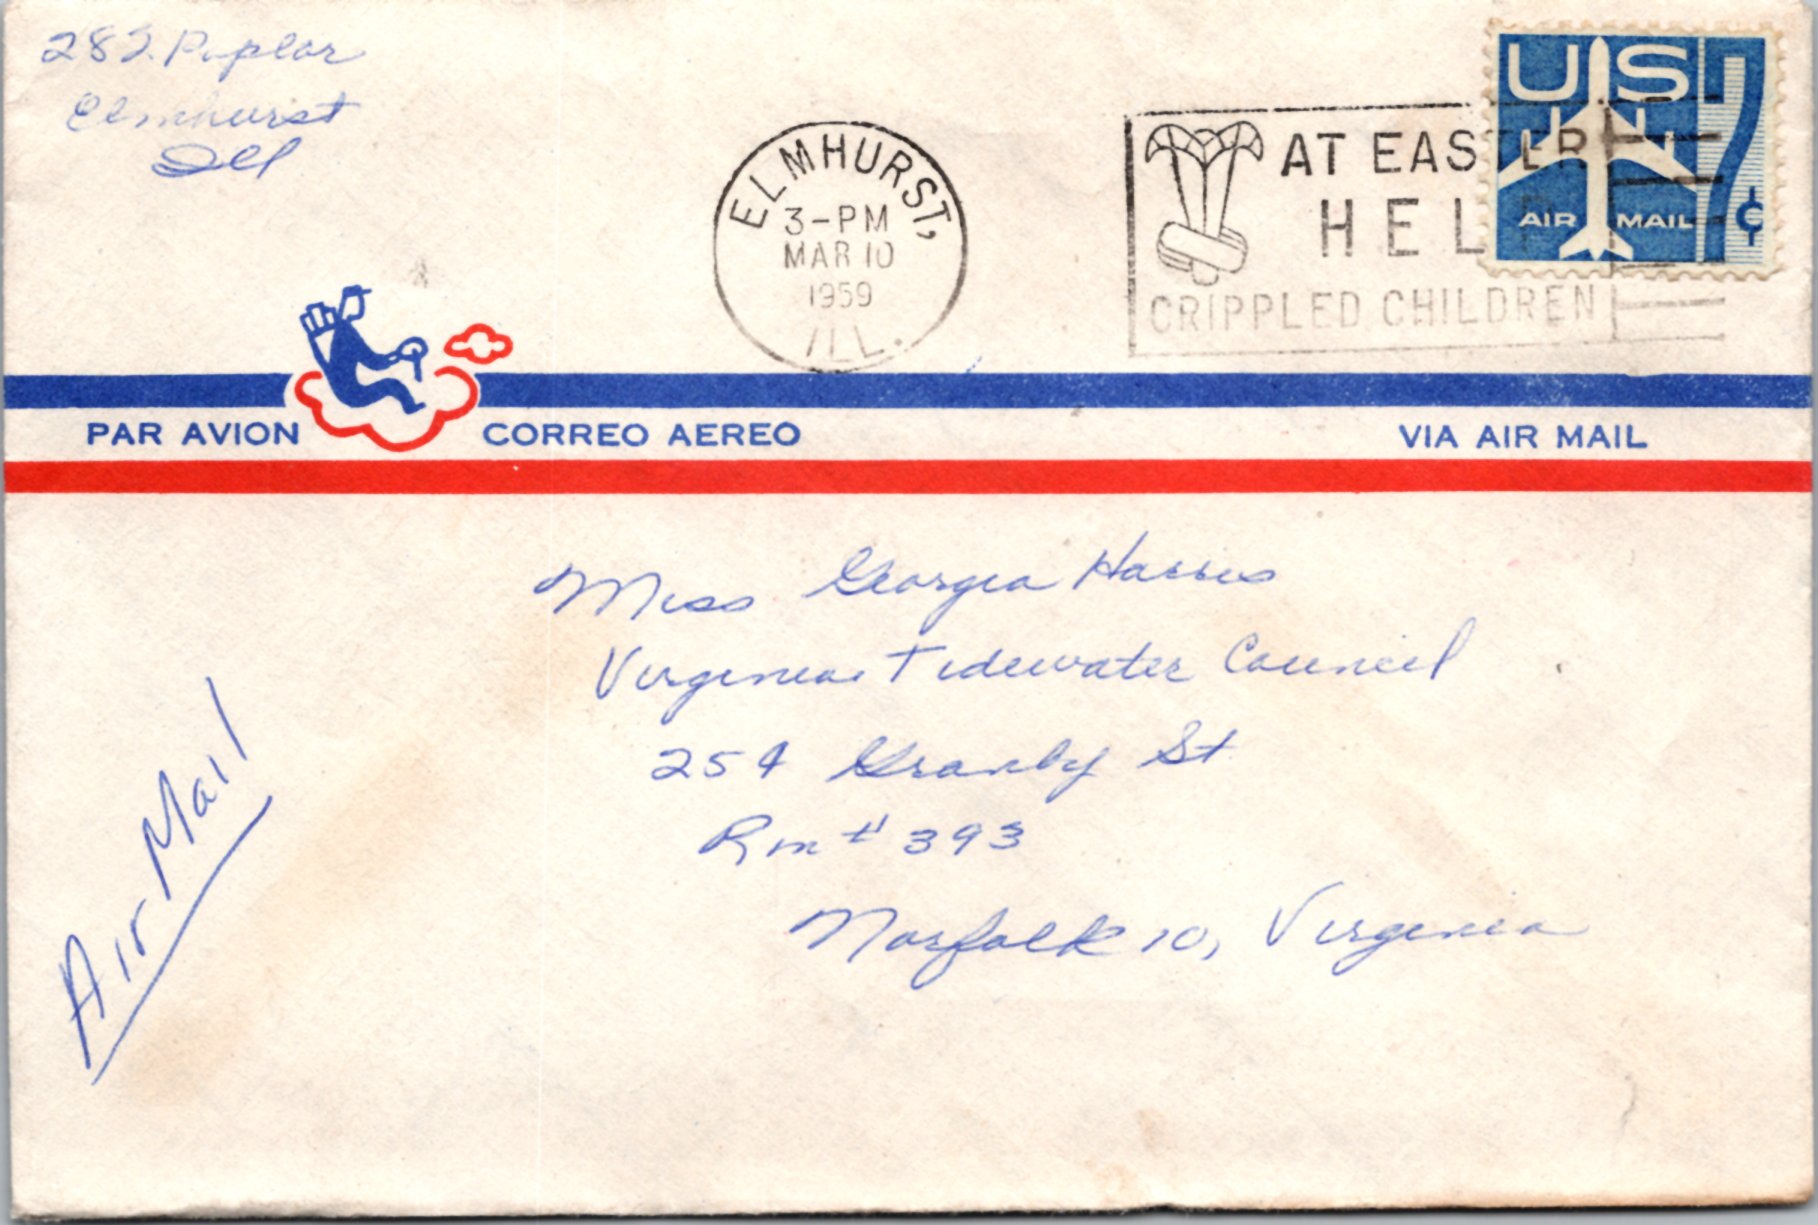 282 Poplar
Elmhurst
Ill
ELMHURST,
3-PM
MAR 10
1959
ILL.
AT EASTER
HELP
CRIPPLED CHILDREN
US 7¢
AIR MAIL
PAR AVION CORREO AEREO VIA AIR MAIL
Miss Georgia Harris
Virginia Tidewater Council
254 Granby St
Rm # 393
Norfolk 10, Virginia
Air Mail